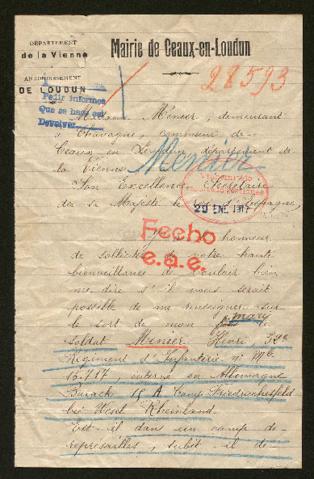 DÉPARTEMENT
de la Vienne
ARRONDISSEMENT
DE LOUDUN
Mairie de Ceaux-en-Loudun
28593
Pedir informes
Que se haga est
Devolver
Madame Ménier, demeurant
à commune de
Ceaux en Loudun département de
la Vienne
Menier
Son Excellence Secrétaire
de sa Majesté le Roi d'Espagne,
29 ENE. 1917
Fecho
e.a.e.
honneur
de solliciter de votre haute
bienveillance de vouloir bien
me dire s'il vous serait
possible de me renseigner sur
mary
le sort de mon le
soldat Menier Henri 32e
Régiment d'Infanterie n° Mle
interné en Allemagne
Barack 15 A Camp Friedrichsfeld
bei Wesel Rheinland
Est-il dans un camp de
représailles, subit-il de